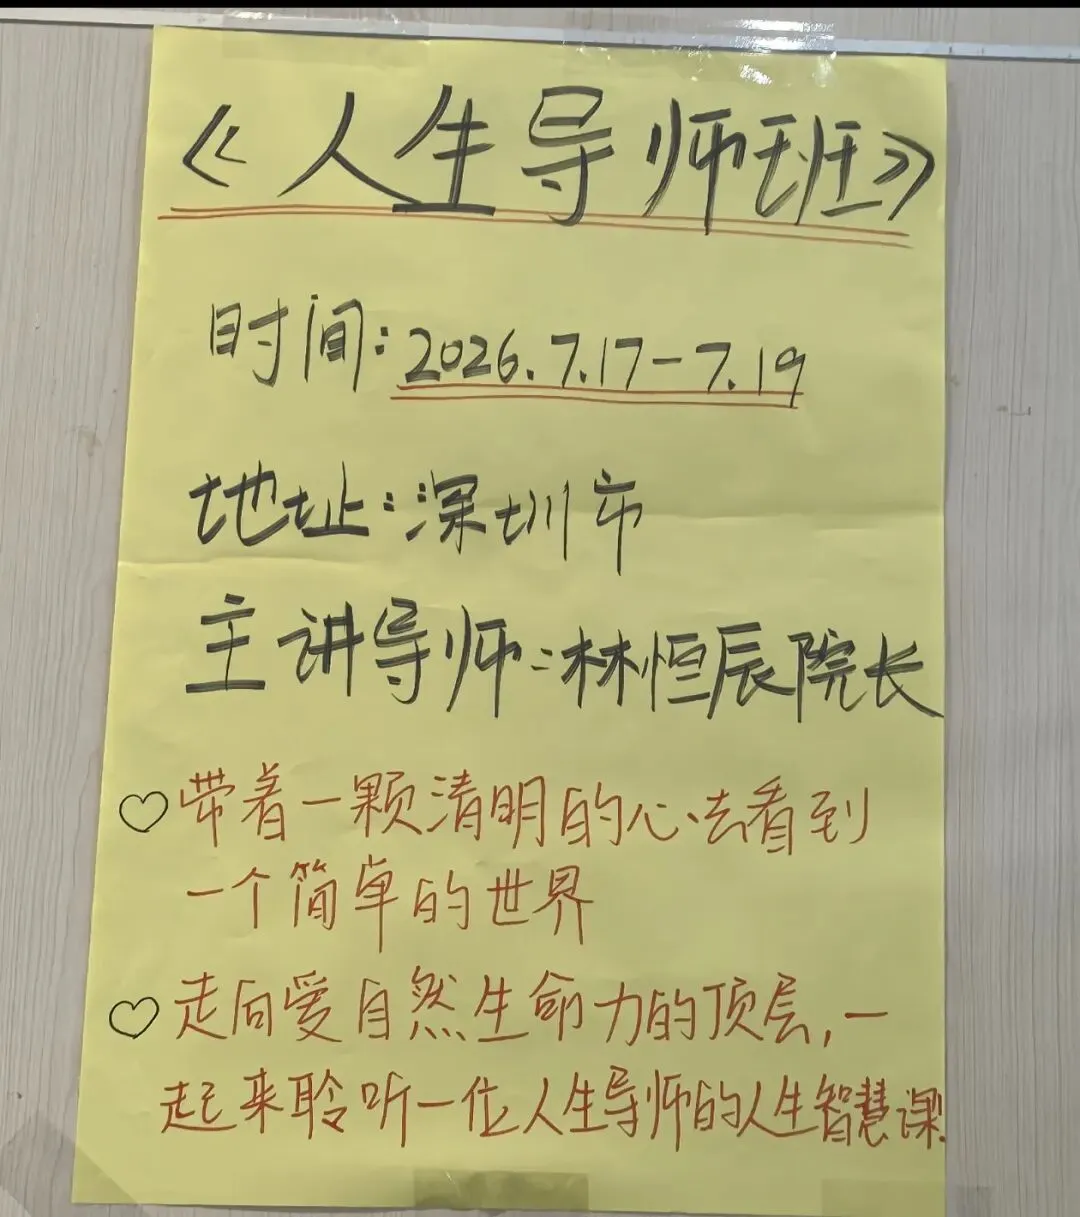 《人生导师班》
时间:2026.7.17-7.19
地址:深圳市
主讲导师:林恒辰院长
♡带着一颗清明的心去看到
一个简单的世界
♡走向爱自然生命力的顶层,一
起来聆听一位人生导师的人生智慧课.